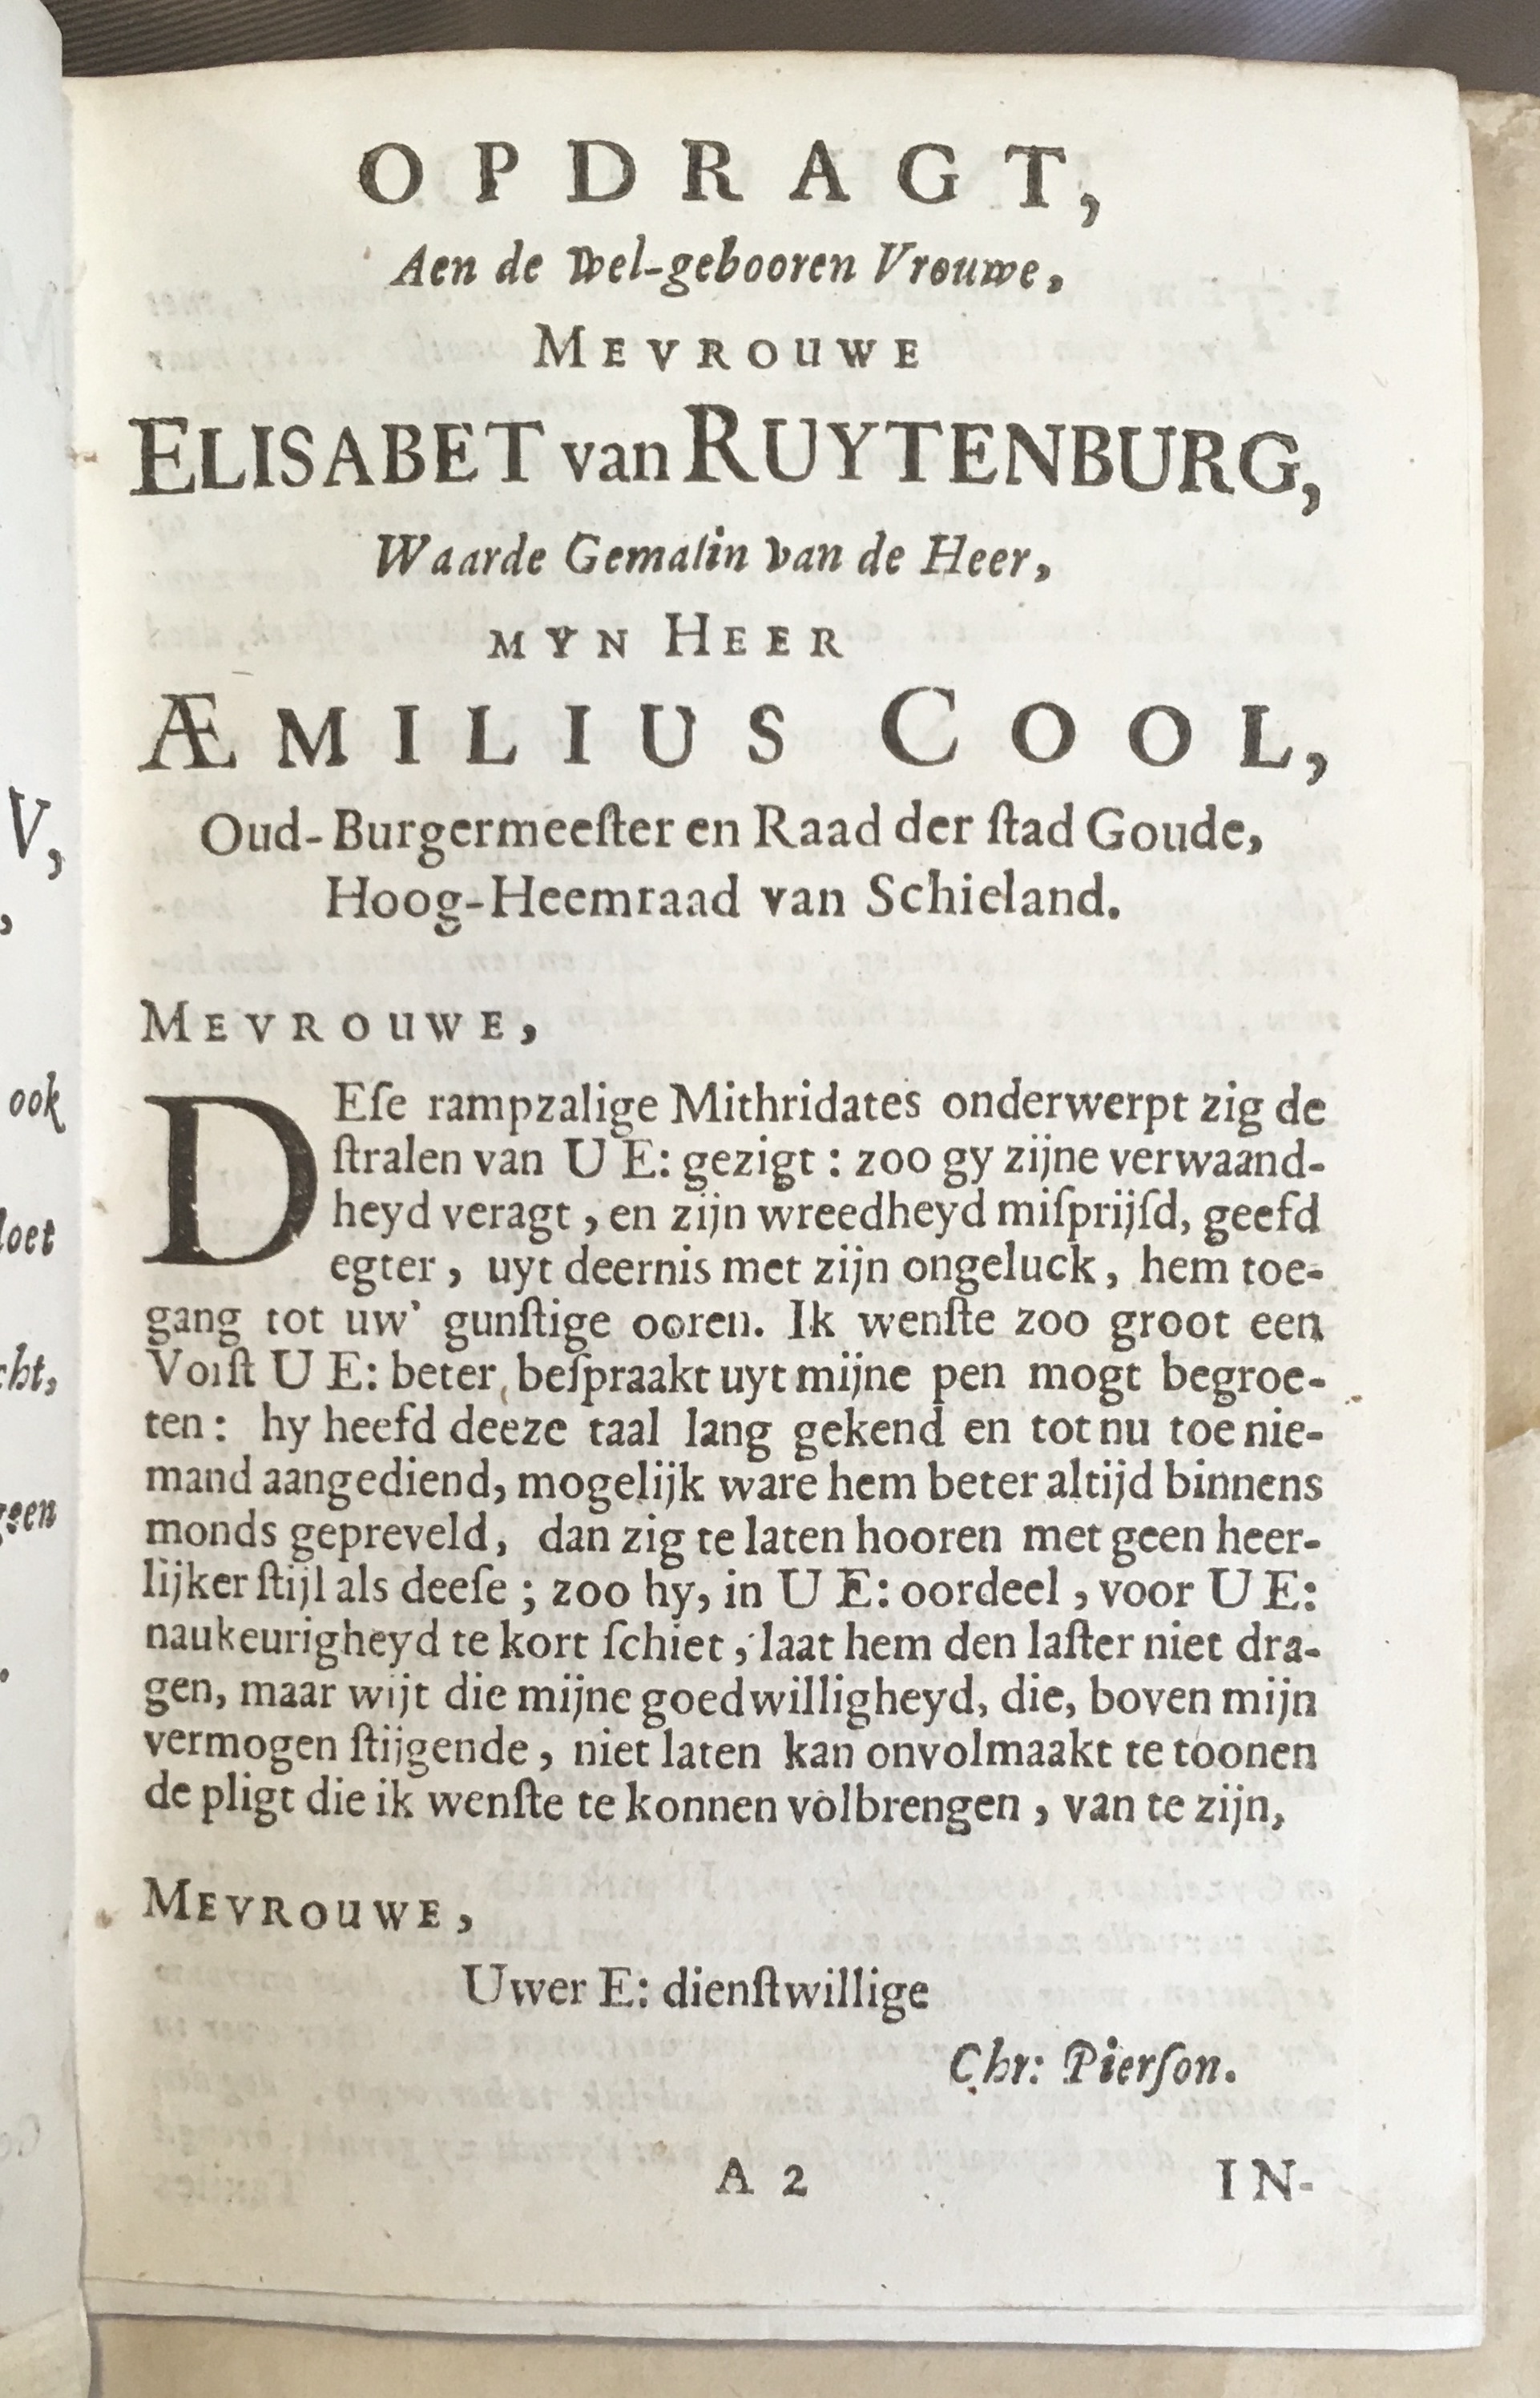 OPDRAGT,
Aen de Wel-gebooren Vrouwe,
MEVROUWE
ELISABET van RUYTENBURG,
Waarde Gemalin van de Heer,
MYN HEER
ÆMILIUS COOL,
Oud-Burgermeeſter en Raad der ſtad Goude,
Hoog-Heemraad van Schieland.
MEVROUWE,
DEſe rampzalige Mithridates onderwerpt zig de
ſtralen van U E: gezigt: zoo gy zijne verwaand-
heyd veragt, en zijn wreedheyd miſprijſd, geefd
egter, uyt deernis met zijn ongeluck, hem toe-
gang tot uw' gunſtige ooren. Ik wenſte zoo groot een
Vorſt U E: beter beſpraakt uyt mijne pen mogt begroe-
ten: hy heefd deeze taal lang gekend en tot nu toe nie-
mand aangediend, mogelijk ware hem beter altijd binnens
monds gepreveld, dan zig te laten hooren met geen heer-
lijker ſtijl als deeſe; zoo hy, in U E: oordeel, voor U E:
naukeurigheyd te kort ſchiet, laat hem den laſter niet dra-
gen, maar wijt die mijne goedwilligheyd, die, boven mijn
vermogen ſtijgende, niet laten kan onvolmaakt te toonen
de pligt die ik wenſte te konnen volbrengen, van te zijn,
MEVROUWE,
Uwer E: dienſtwillige
Chr: Pierſon.
A 2 IN-
V,
,
ook
loet
cht,
geen